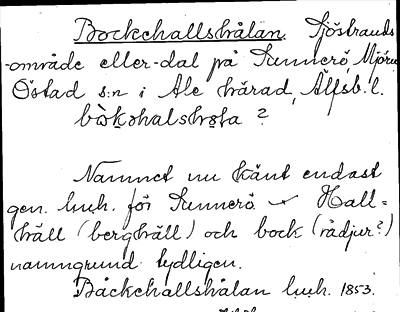 Bockehallshålan. Sjöstrands
-område eller -dal på Sunnerö, Mjörn
Östad s:n i Ale härad, Älfsb. l.
bòkohalshola ?
Namnet nu känt endast
gen. lmh. för Sunnerö. Hall =
häll (berghäll) och bock (rådjur?)
namngrund tydligen.
Båckehallshålan lmh. 1853.